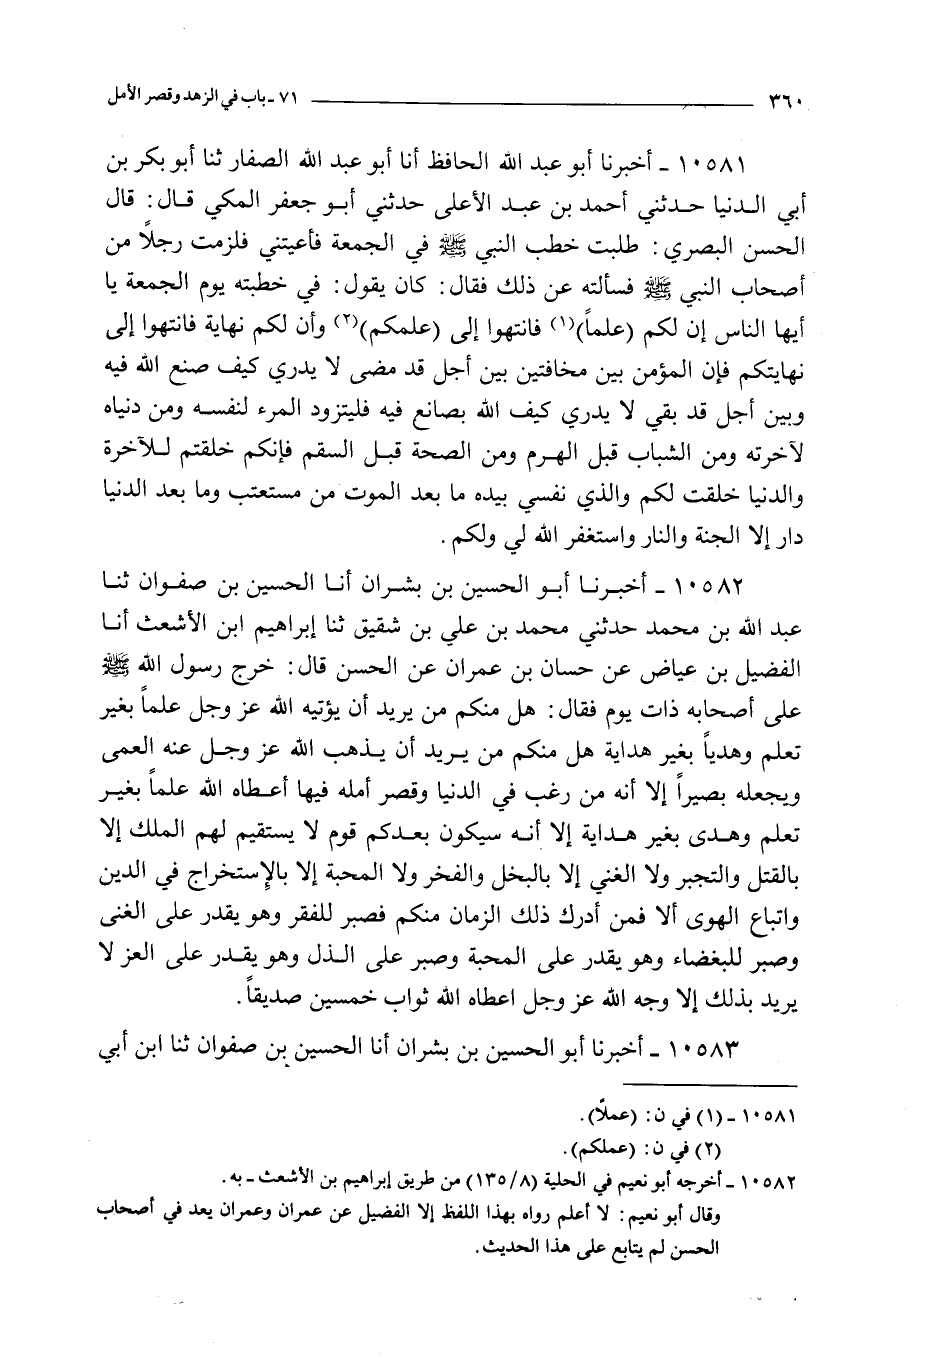 ٣٦٠ ٧١ - باب في الزهد وقصر الأمل
١٠٥٨١ - أخبرنا أبو عبد الله الحافظ أنا أبو عبد الله الصفار ثنا أبو بكر بن
أبي الدنيا حدثني أحمد بن عبد الأعلى حدثني أبو جعفر المكي قال: قال
الحسن البصري: طلبت خطب النبي ﷺ في الجمعة فأعيتني فلزمت رجلاً من
أصحاب النبي ﷺ فسألته عن ذلك فقال: كان يقول: في خطبته يوم الجمعة يا
أيها الناس إن لكم (علماً)(١) فانتهوا إلى (علمكم)(٢) وأن لكم نهاية فانتهوا إلى
نهايتكم فإن المؤمن بين مخافتين بين أجل قد مضى لا يدري كيف صنع الله فيه
وبين أجل قد بقي لا يدري كيف الله بصانع فيه فليتزود المرء لنفسه ومن دنياه
لآخرته ومن الشباب قبل الهرم ومن الصحة قبل السقم فإنكم خلقتم للآخرة
والدنيا خلقت لكم والذي نفسي بيده ما بعد الموت من مستعتب وما بعد الدنيا
دار إلا الجنة والنار واستغفر الله لي ولكم.
١٠٥٨٢ - أخبرنا أبو الحسين بن بشران أنا الحسين بن صفوان ثنا
عبد الله بن محمد حدثني محمد بن علي بن شقيق ثنا إبراهيم ابن الأشعث أنا
الفضيل بن عياض عن حسان بن عمران عن الحسن قال: خرج رسول الله ﷺ
على أصحابه ذات يوم فقال: هل منكم من يريد أن يؤتيه الله عز وجل علماً بغير
تعلم وهدياً بغير هداية هل منكم من يريد أن يذهب الله عز وجل عنه العمى
ويجعله بصيراً إلا أنه من رغب في الدنيا وقصر أمله فيها أعطاه الله علماً بغير
تعلم وهدى بغير هداية إلا أنه سيكون بعدكم قوم لا يستقيم لهم الملك إلا
بالقتل والتجبر ولا الغني إلا بالبخل والفخر ولا المحبة إلا بالإستخراج في الدين
واتباع الهوى ألا فمن أدرك ذلك الزمان منكم فصبر للفقر وهو يقدر على الغنى
وصبر للبغضاء وهو يقدر على المحبة وصبر على الذل وهو يقدر على العز لا
يريد بذلك إلا وجه الله عز وجل اعطاه الله ثواب خمسين صديقاً.
١٠٥٨٣ - أخبرنا أبو الحسين بن بشران أنا الحسين بن صفوان ثنا ابن أبي
١٠٥٨١ - (١) في ن: (عملاً).
(٢) في ن: (عملكم).
١٠٥٨٢ - أخرجه أبو نعيم في الحلية (١٣٥/٨) من طريق إبراهيم بن الأشعث - به.
وقال أبو نعيم: لا أعلم رواه بهذا اللفظ إلا الفضيل عن عمران وعمران يعد في أصحاب
الحسن لم يتابع على هذا الحديث.